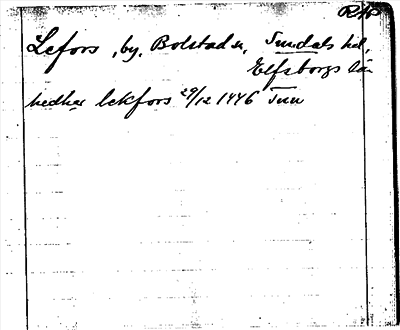 Lefors, by, Bolstad sn, Sundals hd,
Elfsborgs län
nedhær lekfors 29/12 1446